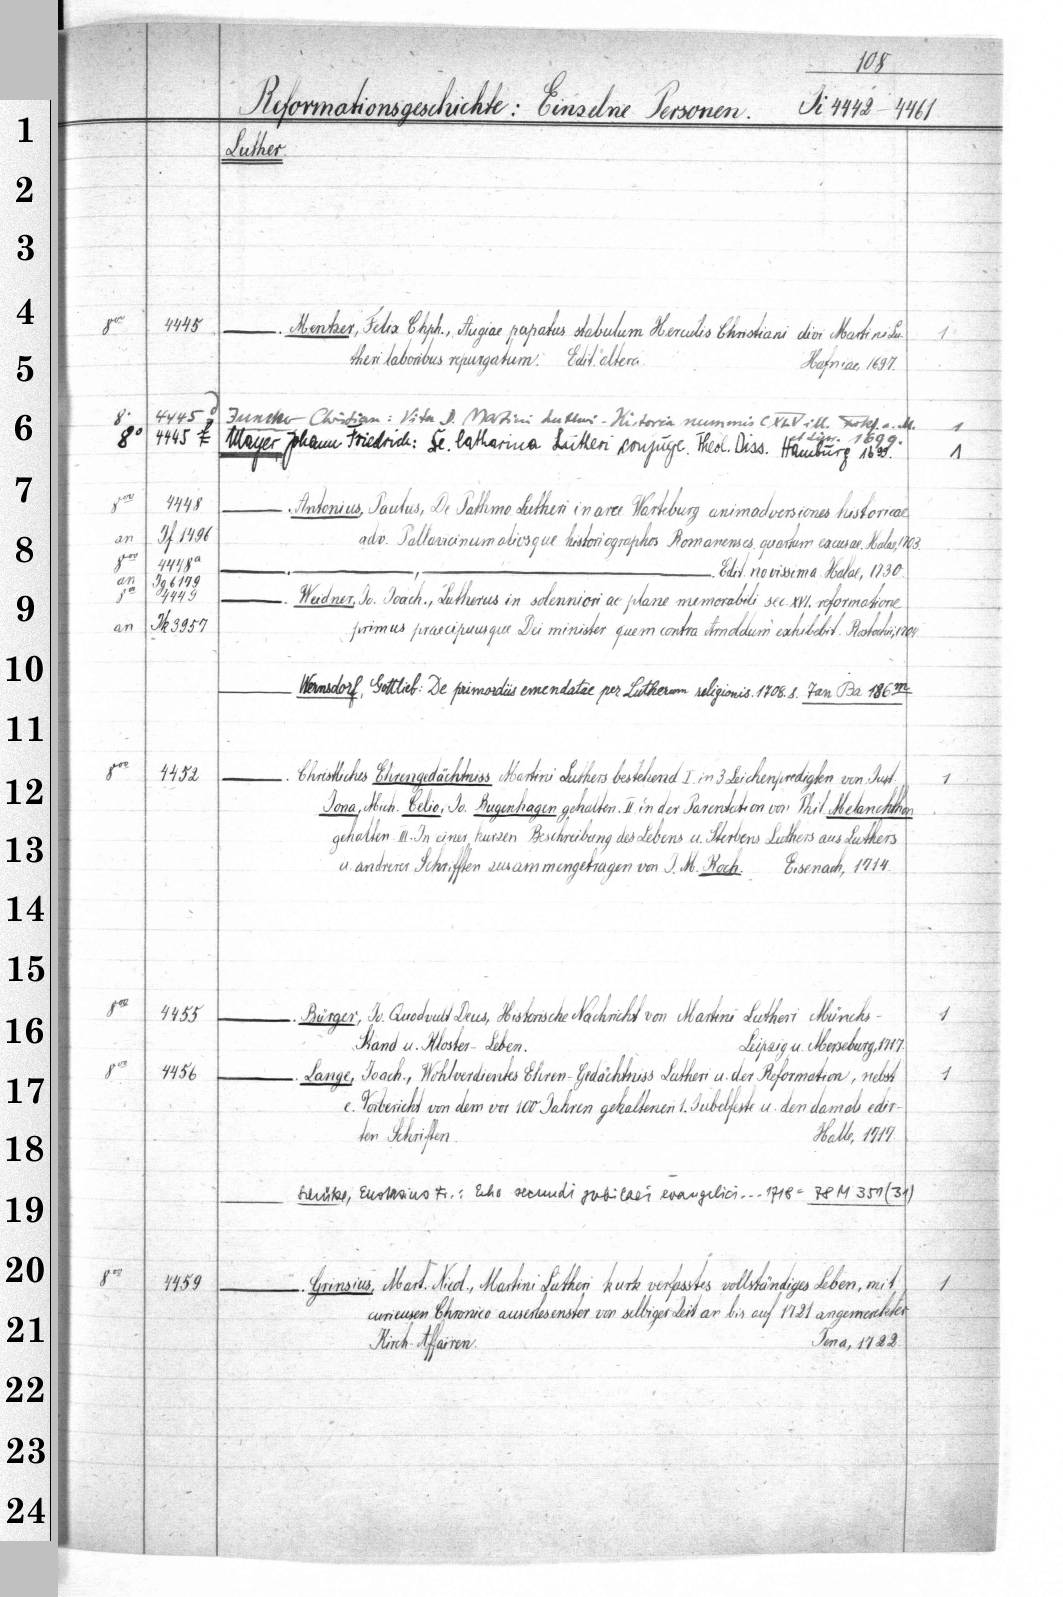 108
Reformationsgeschichte: Einzelne Personen. Ti 4442 - 4461
1
Luther.
2
3
4
8vo 4445 . Mentzer, Felix Chph., Augiae papatus stabulum Herculis Christiani divi Martini Lu- 1
5
theri laboribus repurgatum. Edit. altera. Hafniae 1697.
6
8° 4445 Juncker Christian: Vita D. Martini Lutheri - Historia nummis CXLV ill. a. M. 1
et Lips. 1699.
8° 4445 Mayer, Johann Friedrich: De Catharina Lutheri conjuge. Theol. Diss. Hamburg 1699. 1
7
8vo 4448 . Antonius, Paulus, De Pathmo Lutheri in arce Warteburg animadversiones historicae
an If 1496 adv. Pallavicinum aliosque historiographos Romanenses quartum excusae. Halae, 1703.
8
8vo 4448a . , . Edit. novissima. Halae, 1730.
an Ig 6179
9
8vo 4449 . Weidner, Jo. Joach., Lutherus in solenniori ac plane memorabili sec. XVI. reformatione
an Ik 3957 primus praecipuusque Dei minister quem contra Arnoldum exhibebit. Rostochii, 1704.
10
Wernsdorf, Gottlieb: De primordiis emendatae per Lutherum religionis. 1708. s. Fan Ba 186m
11
12
8vo 4452 . Christliches Ehrengedächtniss Martini Luthers bestehend I. in 3 Leichenpredigten von Just. 1
Jona, Mich. Celio, Jo. Bugenhagen gehalten. II in der Parentation von Phil. Melanchthon
13
gehalten III. In einer kurzen Beschreibung des Lebens u. Sterbens Luthers aus Luthers
u. andrerer Schrifften zusammengetragen von J. M. Koch. Eisenach, 1714.
14
15
16
8vo 4455 . Bürger, Jo. Quodvult Deus, Historische Nachricht von Martini Lutheri Münchs- 1
Stand u. Kloster-Leben. Leipzig u. Merseburg, 1717.
17
8vo 4456 . Lange, Joach., Wohlverdientes Ehren-Gedächtniss Lutheri u. der Reformation, nebst 1
e. Vorbericht von dem vor 100 Jahren gehaltenen 1. Jubelfeste u. den damals edir-
18
ten Schriften. Halle, 1717.
19
Schütze, Eustasius Fr.: Echo secundi jubilaei evangelici... 1718 = 78 M 351 (31)
20
8vo 4459 . Grinsius, Mart. Nicol., Martini Lutheri kurtz verfasstes vollständiges Leben, mit 1
curieusen Chronico auserlesenster von selbiger Zeit an bis auf 1721 angemerckter
21
Kirch-Affairen. Jena, 1722.
22
23
24